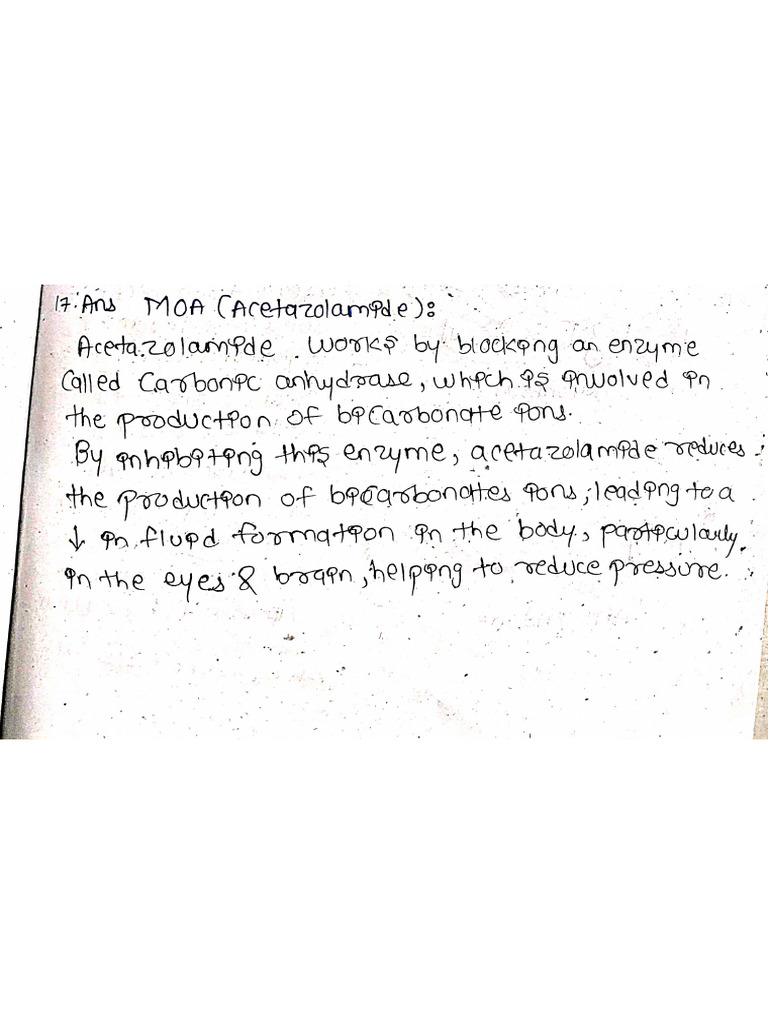 17. Ans MOA (Acetazolamide):
Acetazolamide works by blocking an enzyme
Called Carbonic anhydrase, which is involved in
the production of biCarbonate ions.
By inhibiting this enzyme, acetazolamide reduces
the production of bicarbonates ions, leading to a
↓ in fluid formation in the body, particularly
in the eyes & brain, helping to reduce pressure.